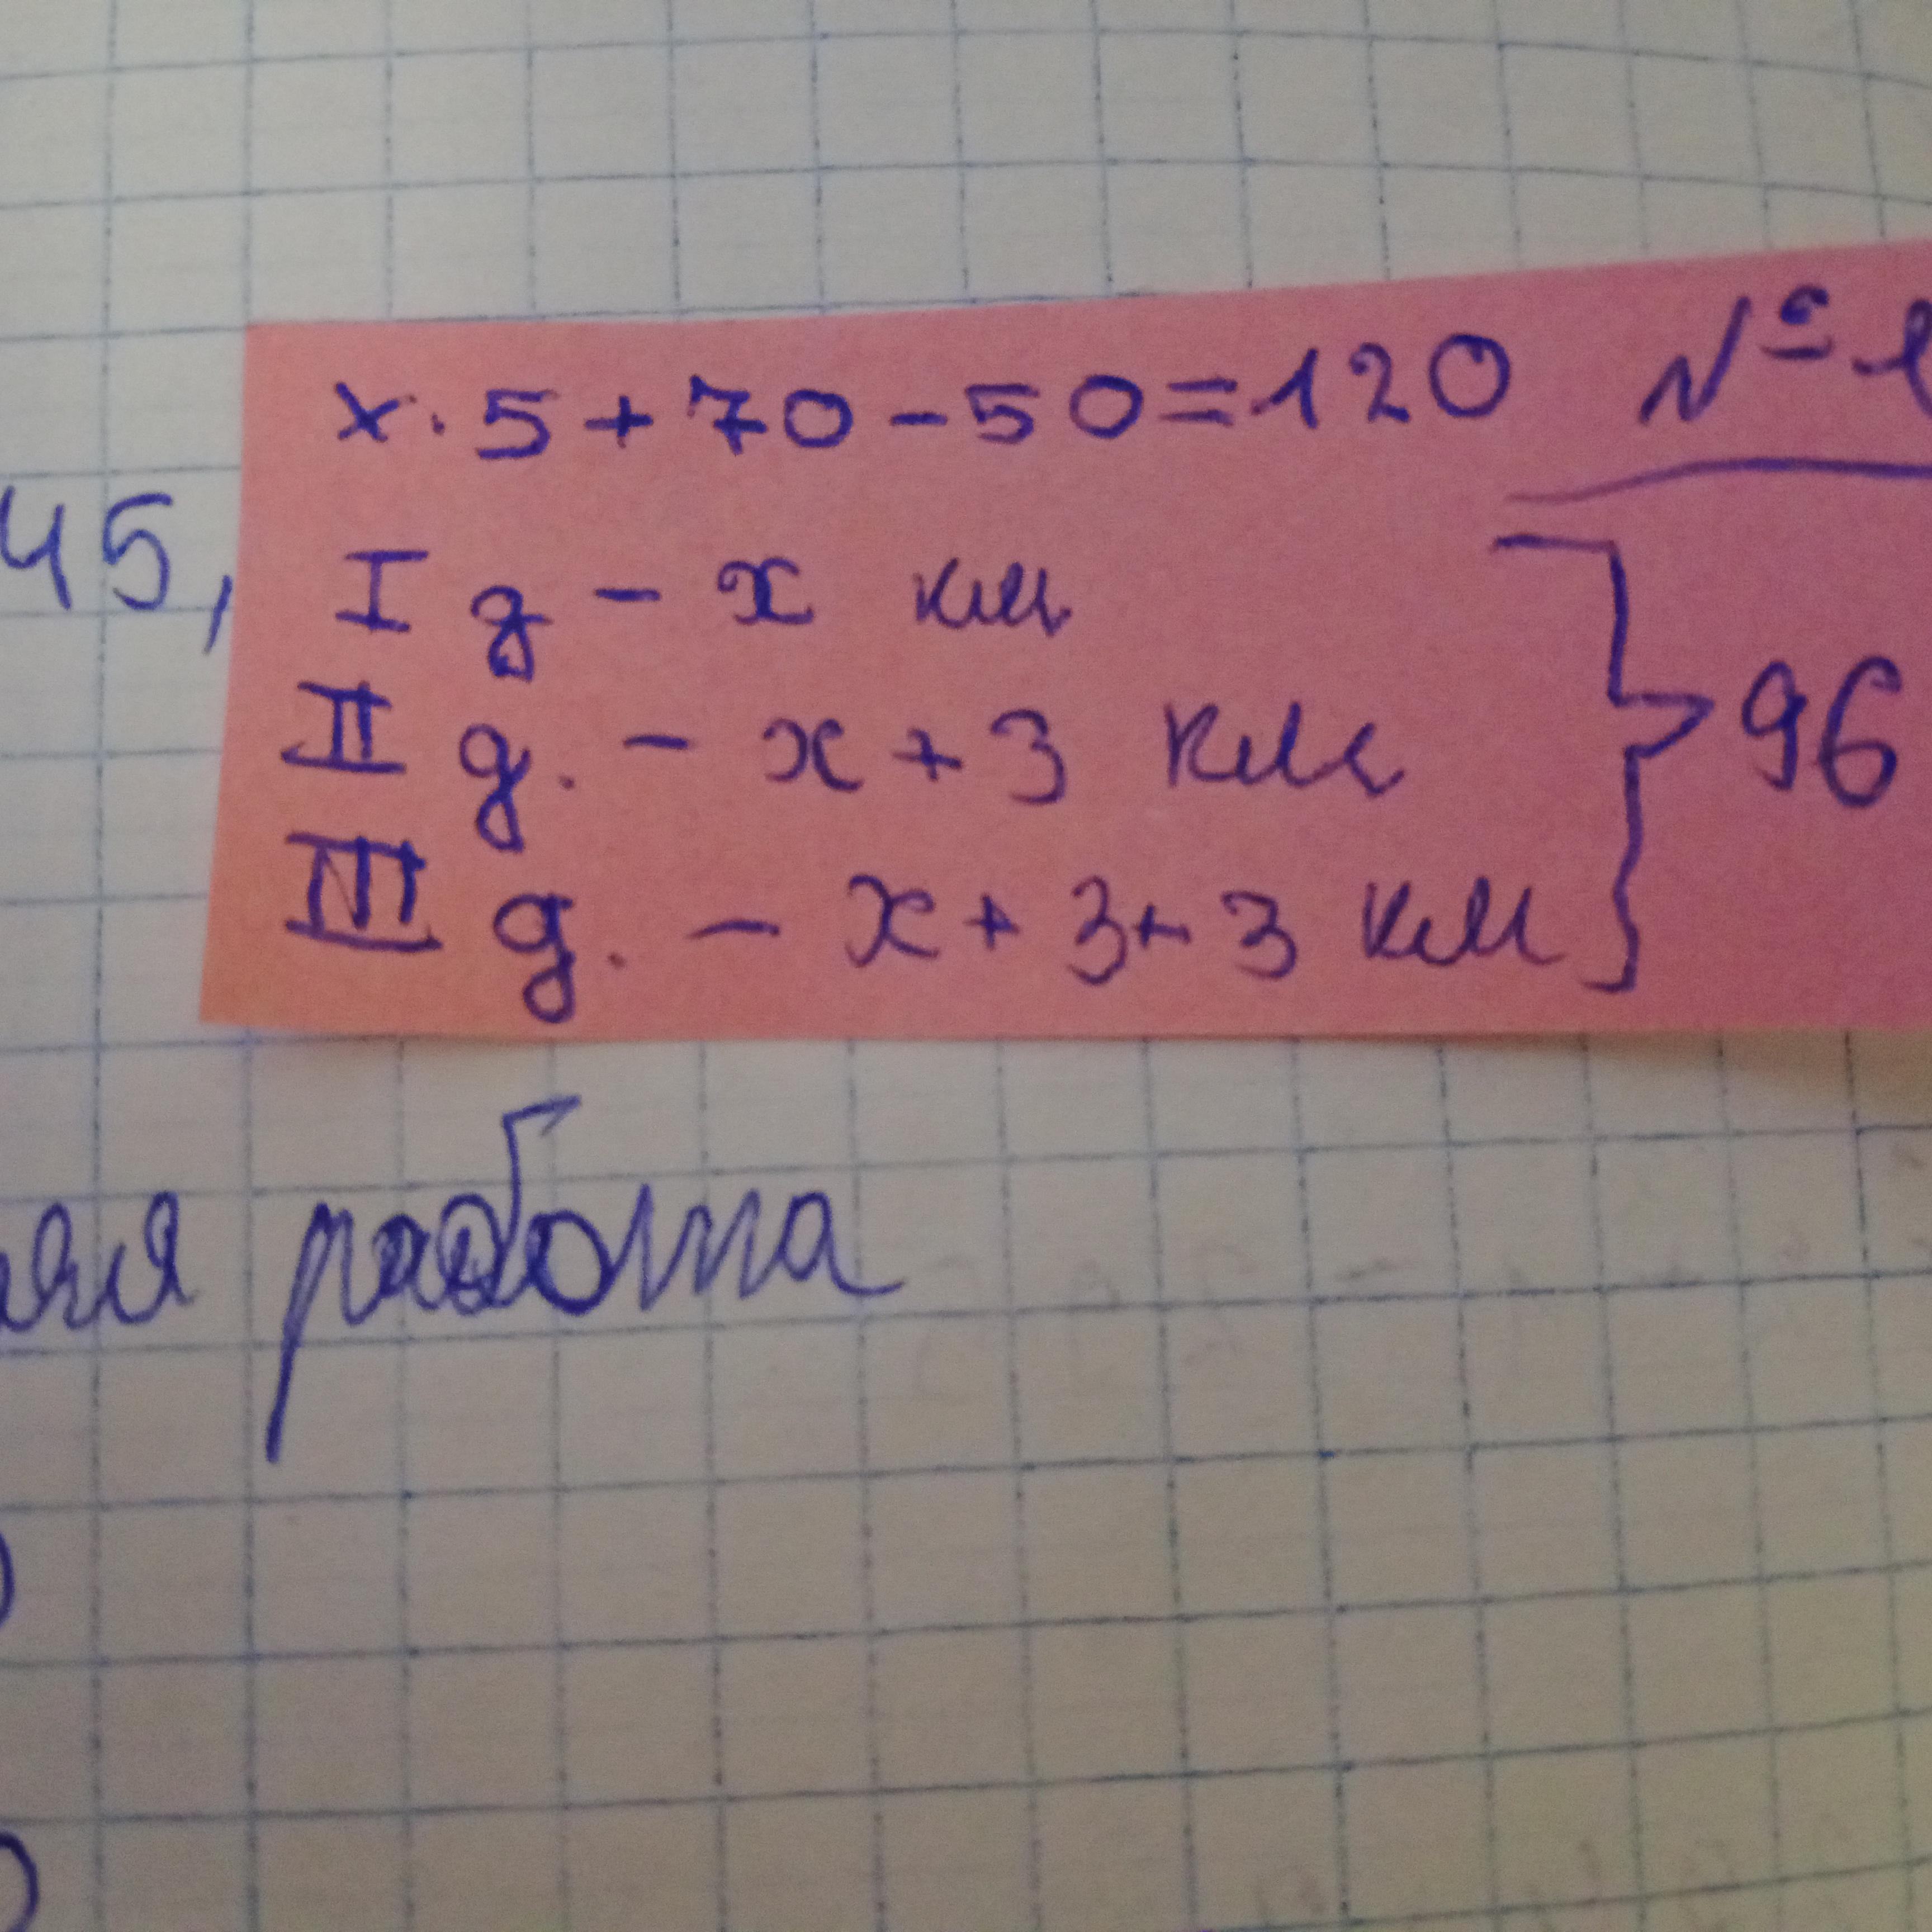 x · 5 + 70 - 50 = 120 №
45,
I д - x км
II д. - x + 3 км
III д. - x + 3 + 3 км } 96
работа